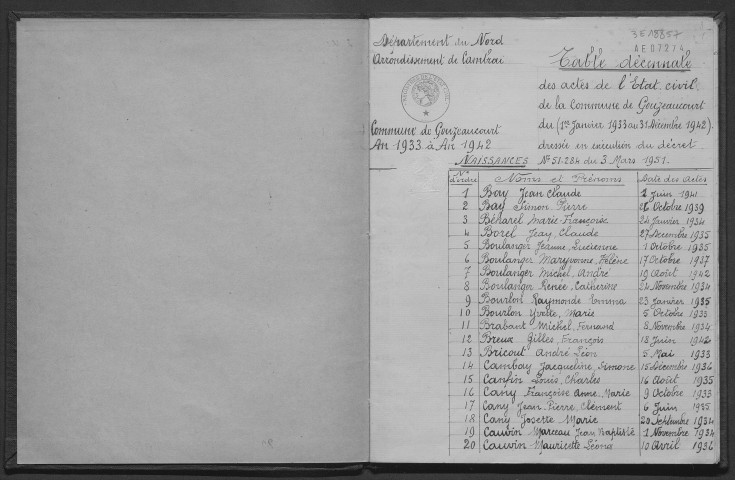 3E18857
AE07274
Département du Nord
Arrondissement de Cambrai
Commune de Gouzeaucourt
An 1933 à An 1942
Table décennale
des actes de l'Etat civil
de la Commune de Gouzeaucourt
du (1er Janvier 1933 au 31 Décembre 1942)
dressée en exécution du décret
N° 51-284 du 3 Mars 1951.
NAISSANCES
N° d'ordre Noms et Prénoms Date des Actes
1 Bay Jean Claude 2 Juin 1941
2 Bay Simon Pierre 26 Octobre 1939
3 Béharel Marie-Françoise 24 Janvier 1934
4 Borel Jean, Claude 27 Décembre 1935
5 Boulanger Jeanne, Lucienne 1 Octobre 1935
6 Boulanger Maryvonne, Hélène 17 Octobre 1937
7 Boulanger Michel, André 19 Août 1942
8 Boulanger Renée, Catherine 24 Novembre 1934
9 Bourlon Raymonde Emma 23 Janvier 1935
10 Bourlon Yvette, Marie 5 Octobre 1933
11 Brabant Michel, Fernand 8 Novembre 1934
12 Breux Gilles, François 18 Juin 1942
13 Bricout André Léon 5 Mai 1933
14 Cambay Jacqueline, Simone 15 Décembre 1936
15 Canfin Louis, Charles 16 Août 1935
16 Cany Françoise Anne, Marie 9 Octobre 1933
17 Cany Jean, Pierre, Clément 6 Juin 1935
18 Cany Josette Marie 20 Septembre 1934
19 Cauvin Marceau Jean Baptiste 1 Novembre 1934
20 Cauvin Mauricette Léona 10 Avril 1936